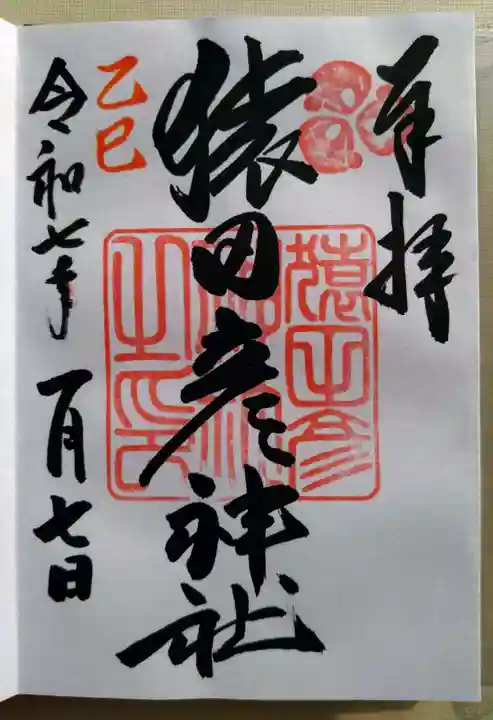 奉拝
猿田彦神社
乙巳
令和七年一月七日
猿田彦
神社
之印